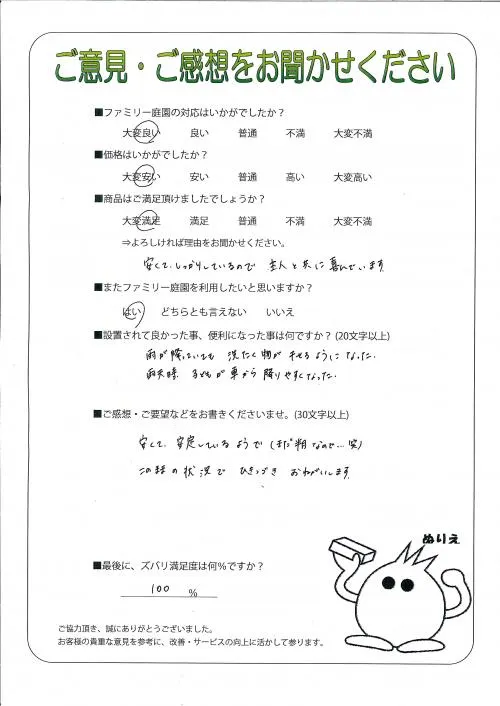 ご意見・ご感想をお聞かせください
■ファミリー庭園の対応はいかがでしたか？
大変良い 良い 普通 不満 大変不満
■価格はいかがでしたか？
大変安い 安い 普通 高い 大変高い
■商品はご満足頂けましたでしょうか？
大変満足 満足 普通 不満 大変不満
⇒よろしければ理由をお聞かせください。
安くて、しっかりしているので 主人と共に喜んでいます。
■またファミリー庭園を利用したいと思いますか？
はい どちらとも言えない いいえ
■設置されて良かった事、便利になった事は何ですか？(20文字以上)
雨が降っていても 洗たく物が干せるようになった。
雨天時 子どもが車から降りやすくなった。
■ご感想・ご要望などをお書きくださいませ。(30文字以上)
安くて、安定しているようで（まだ なので…笑）
この の状況で ひきつづき おねがいします。
ぬりえ
■最後に、ズバリ満足度は何％ですか？
100 ％
ご協力頂き、誠にありがとうございました。
お客様の貴重な意見を参考に、改善・サービスの向上に活かして参ります。